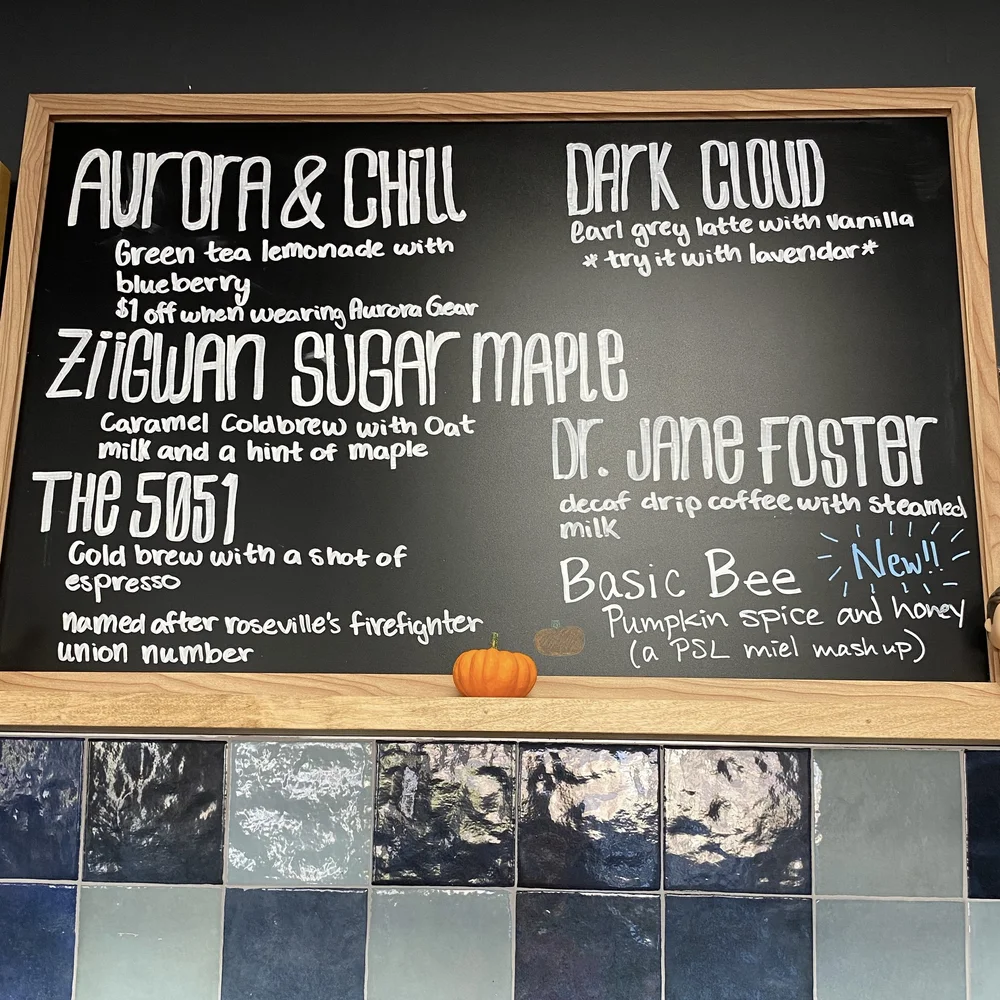 AURORA & CHILL
Green tea lemonade with
blueberry
$1 off when wearing Aurora Gear
ZIIGWAN SUGAR MAPLE
Caramel Coldbrew with Oat
milk and a hint of maple
THE 5051
Cold brew with a shot of
espresso
named after roseville's firefighter
union number
DARK CLOUD
Earl grey latte with vanilla
*try it with lavendar*
DR. JANE FOSTER
decaf drip coffee with steamed
milk
Basic Bee
New!!
Pumpkin spice and honey
(a PSL miel mashup)